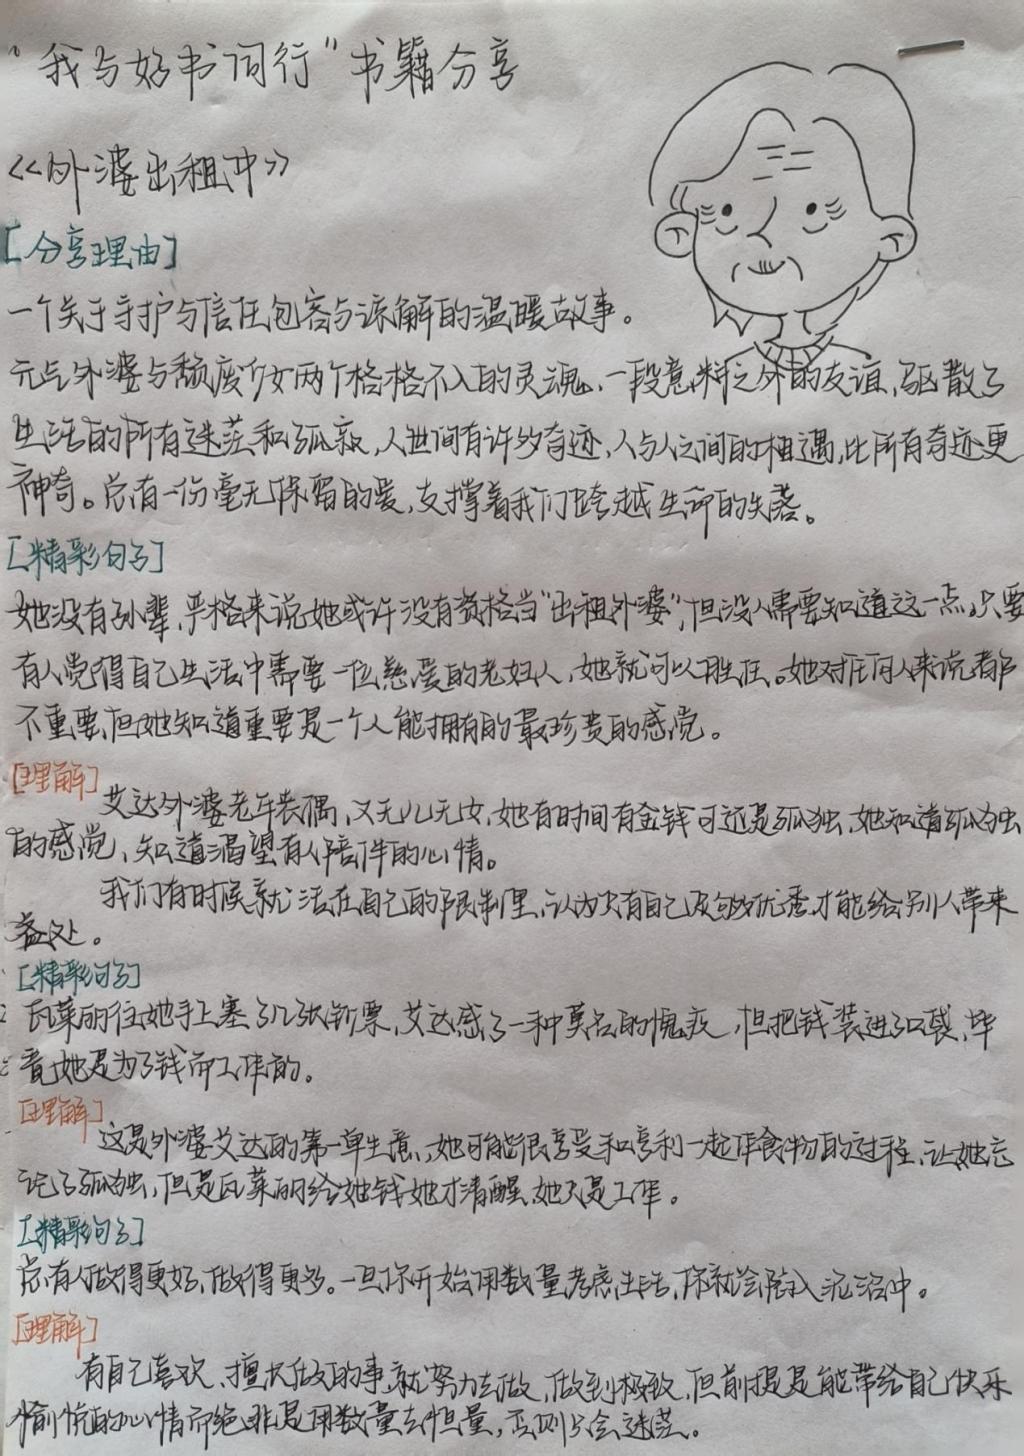 “我与好书同行”书籍分享
《外婆出租中》
[分享理由]
一个关于守护与信任包容与谅解的温暖故事。
元气外婆与颓废少女两个格格不入的灵魂、一段意料之外的友谊，驱散了
生活的所有迷茫和孤寂，人世间有许多奇迹，人与人之间的相遇，比所有奇迹更
神奇。总有一份毫无保留的爱，支撑着我们跨越生命的失落。
[精彩句子]
她没有孙辈，严格来说她或许没有资格当“出租外婆”，但没人需要知道这一点，只要
有人觉得自己生活中需要一位慈爱的老妇人，她就可以胜任。她对任何人来说都
不重要，但她知道重要是一个人能拥有的最珍贵的感觉。
[理解]
艾达外婆老年丧偶，又无儿无女，她有时间有金钱可还是孤独，她知道孤独
的感觉、知道渴望有人陪伴的心情。
我们有时候就活在自己的限制里，认为只有自己足够优秀才能给别人带来
益处。
[精彩句子]
瓦莱丽往她手上塞了几张钞票，艾达感了一种莫名的愧疚，但把钱装进了口袋，毕
竟她是为了钱而工作的。
[理解]
这是外婆艾达的第一单生意，她可能很享受和亨利一起作食物的过程，让她忘
记了孤独，但是瓦莱丽给她钱她才清醒，她只是工作。
[精彩句子]
总有人做得更好，做得更多。一旦你开始用数量考虑生活，你就会陷入泥沼中。
[理解]
有自己喜欢、擅长做的事，就努力去做，做到极致，但前提是能带给自己快乐
愉悦的心情而绝非是用数量去恒量，否则只会迷茫。